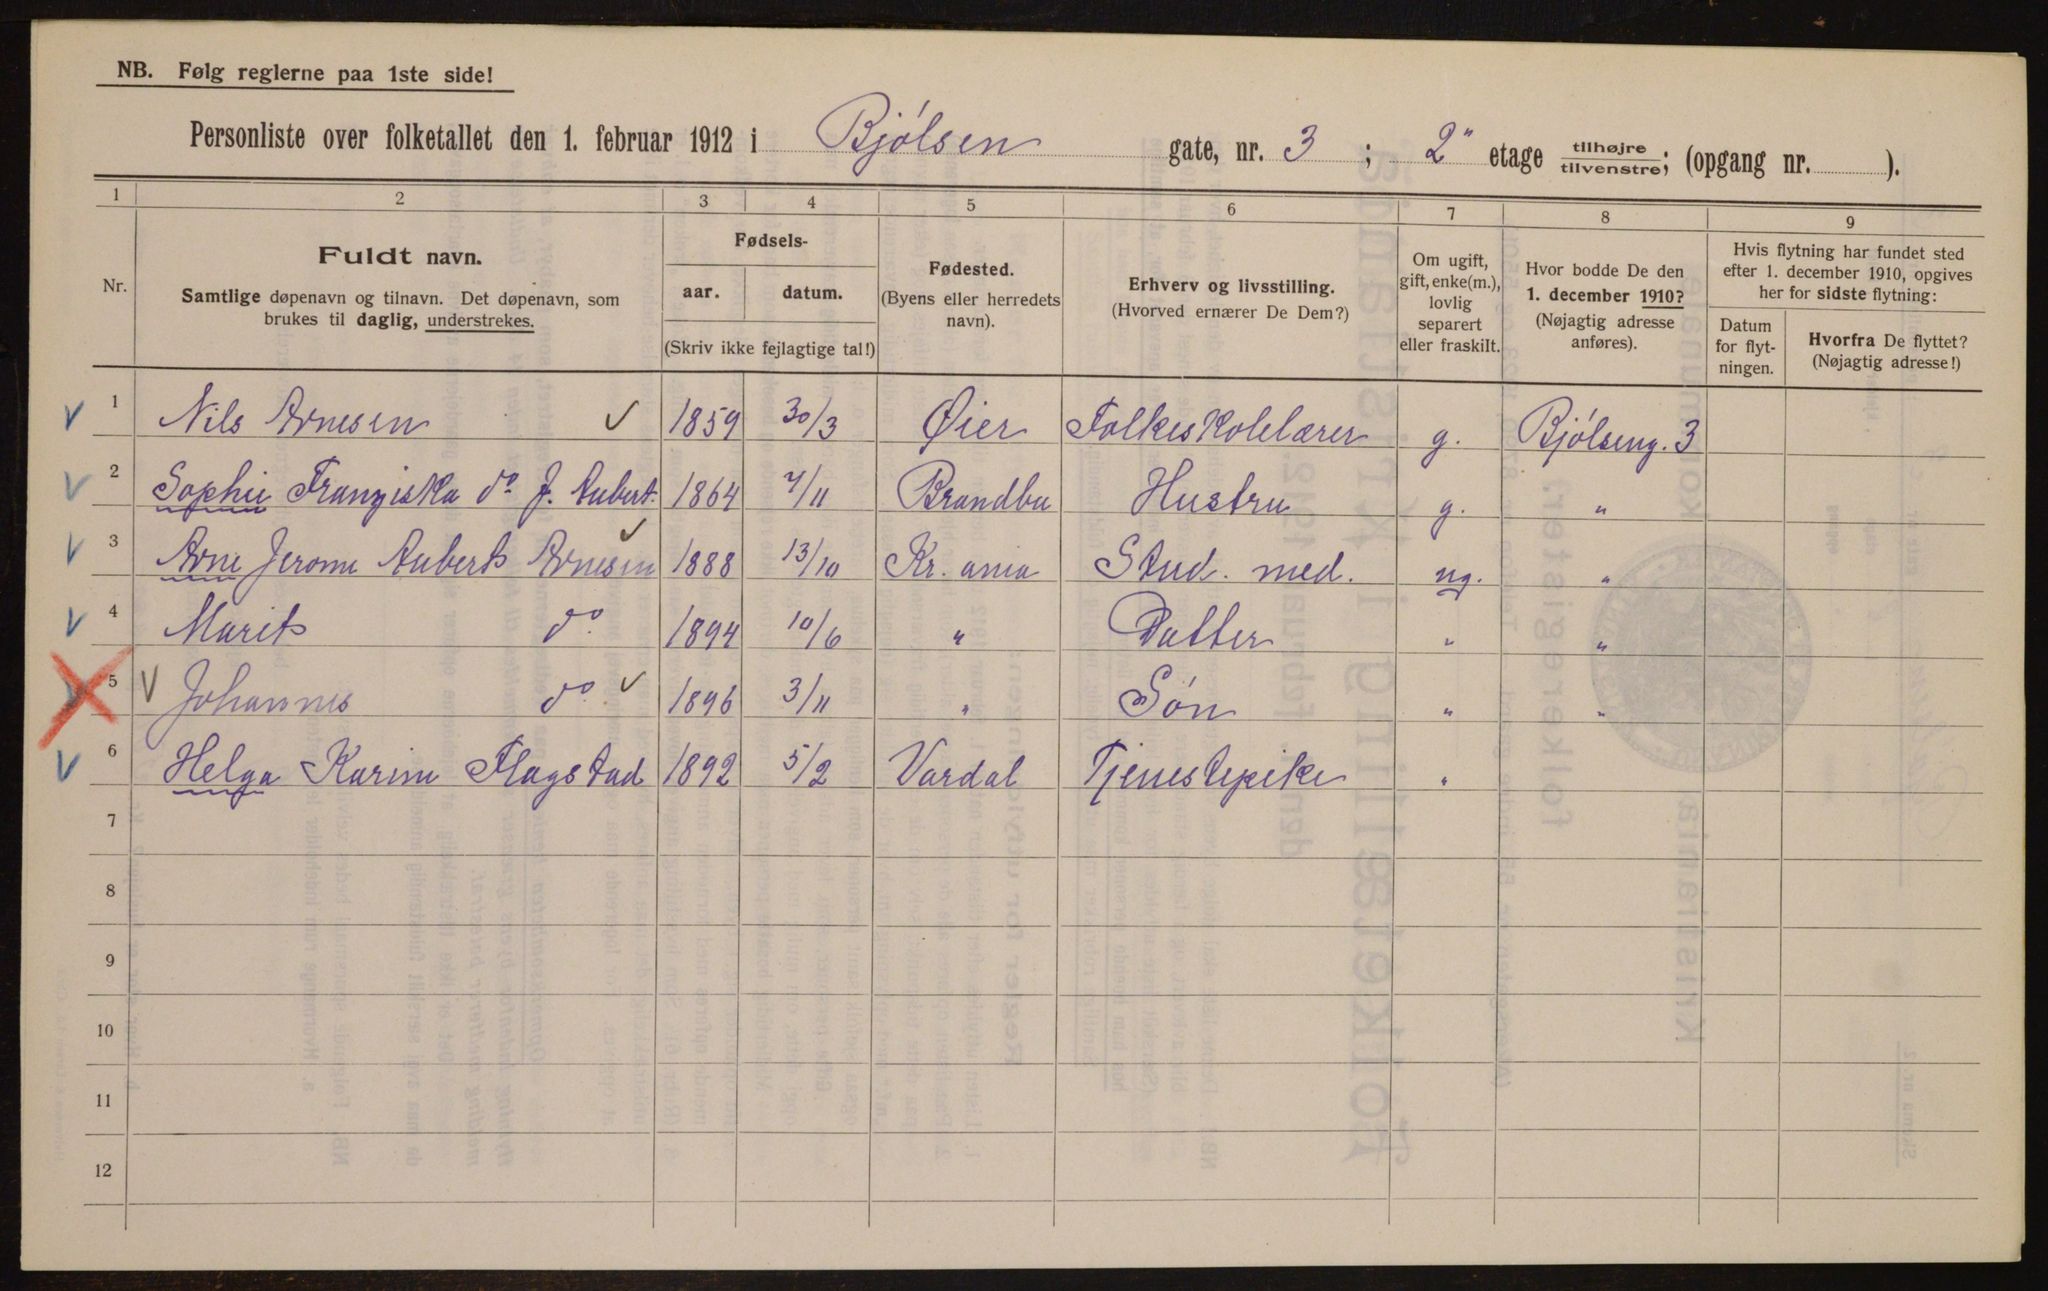 NB. Følg reglerne paa 1ste side!
Personliste over folketallet den 1. februar 1912 i Bjølsen gate, nr. 3 ; 2" etage tilhøjre/tilvenstre; (opgang nr. ).
1 2 3 4 5 6 7 8 9
Nr.
Fuldt navn.
Samtlige døpenavn og tilnavn. Det døpenavn, som
brukes til daglig, understrekes.
Fødsels-
aar. datum.
(Skriv ikke fejlagtige tal!)
Fødested.
(Byens eller herredets
navn).
Erhverv og livsstilling.
(Hvorved ernærer De Dem?)
Om ugift,
gift, enke(m.),
lovlig
separert
eller fraskilt.
Hvor bodde De den
1. december 1910?
(Nøjagtig adresse
anføres).
Hvis flytning har fundet sted
efter 1. december 1910, opgives
her for sidste flytning:
Datum
for flyt-
ningen.
Hvorfra De flyttet?
(Nøjagtig adresse!)
1 Nils Arnesen 1859 30/3 Øier Folkeskolelærer g. Bjølseng. 3
2 Sophie Franziska do. J. Aubert. 1864 7/11 Brandbu Hustru g. "
3 Arne Jerome Aubert Arnesen 1888 13/10 Kr. ania Stud. med. ug. "
4 Marit do. 1894 10/6 " Datter " "
5 Johannes do 1896 3/11 " Søn " "
6 Helga Karine Flagstad 1892 5/2 Vardal Tjenestepike "
7
8
9
10
11
12